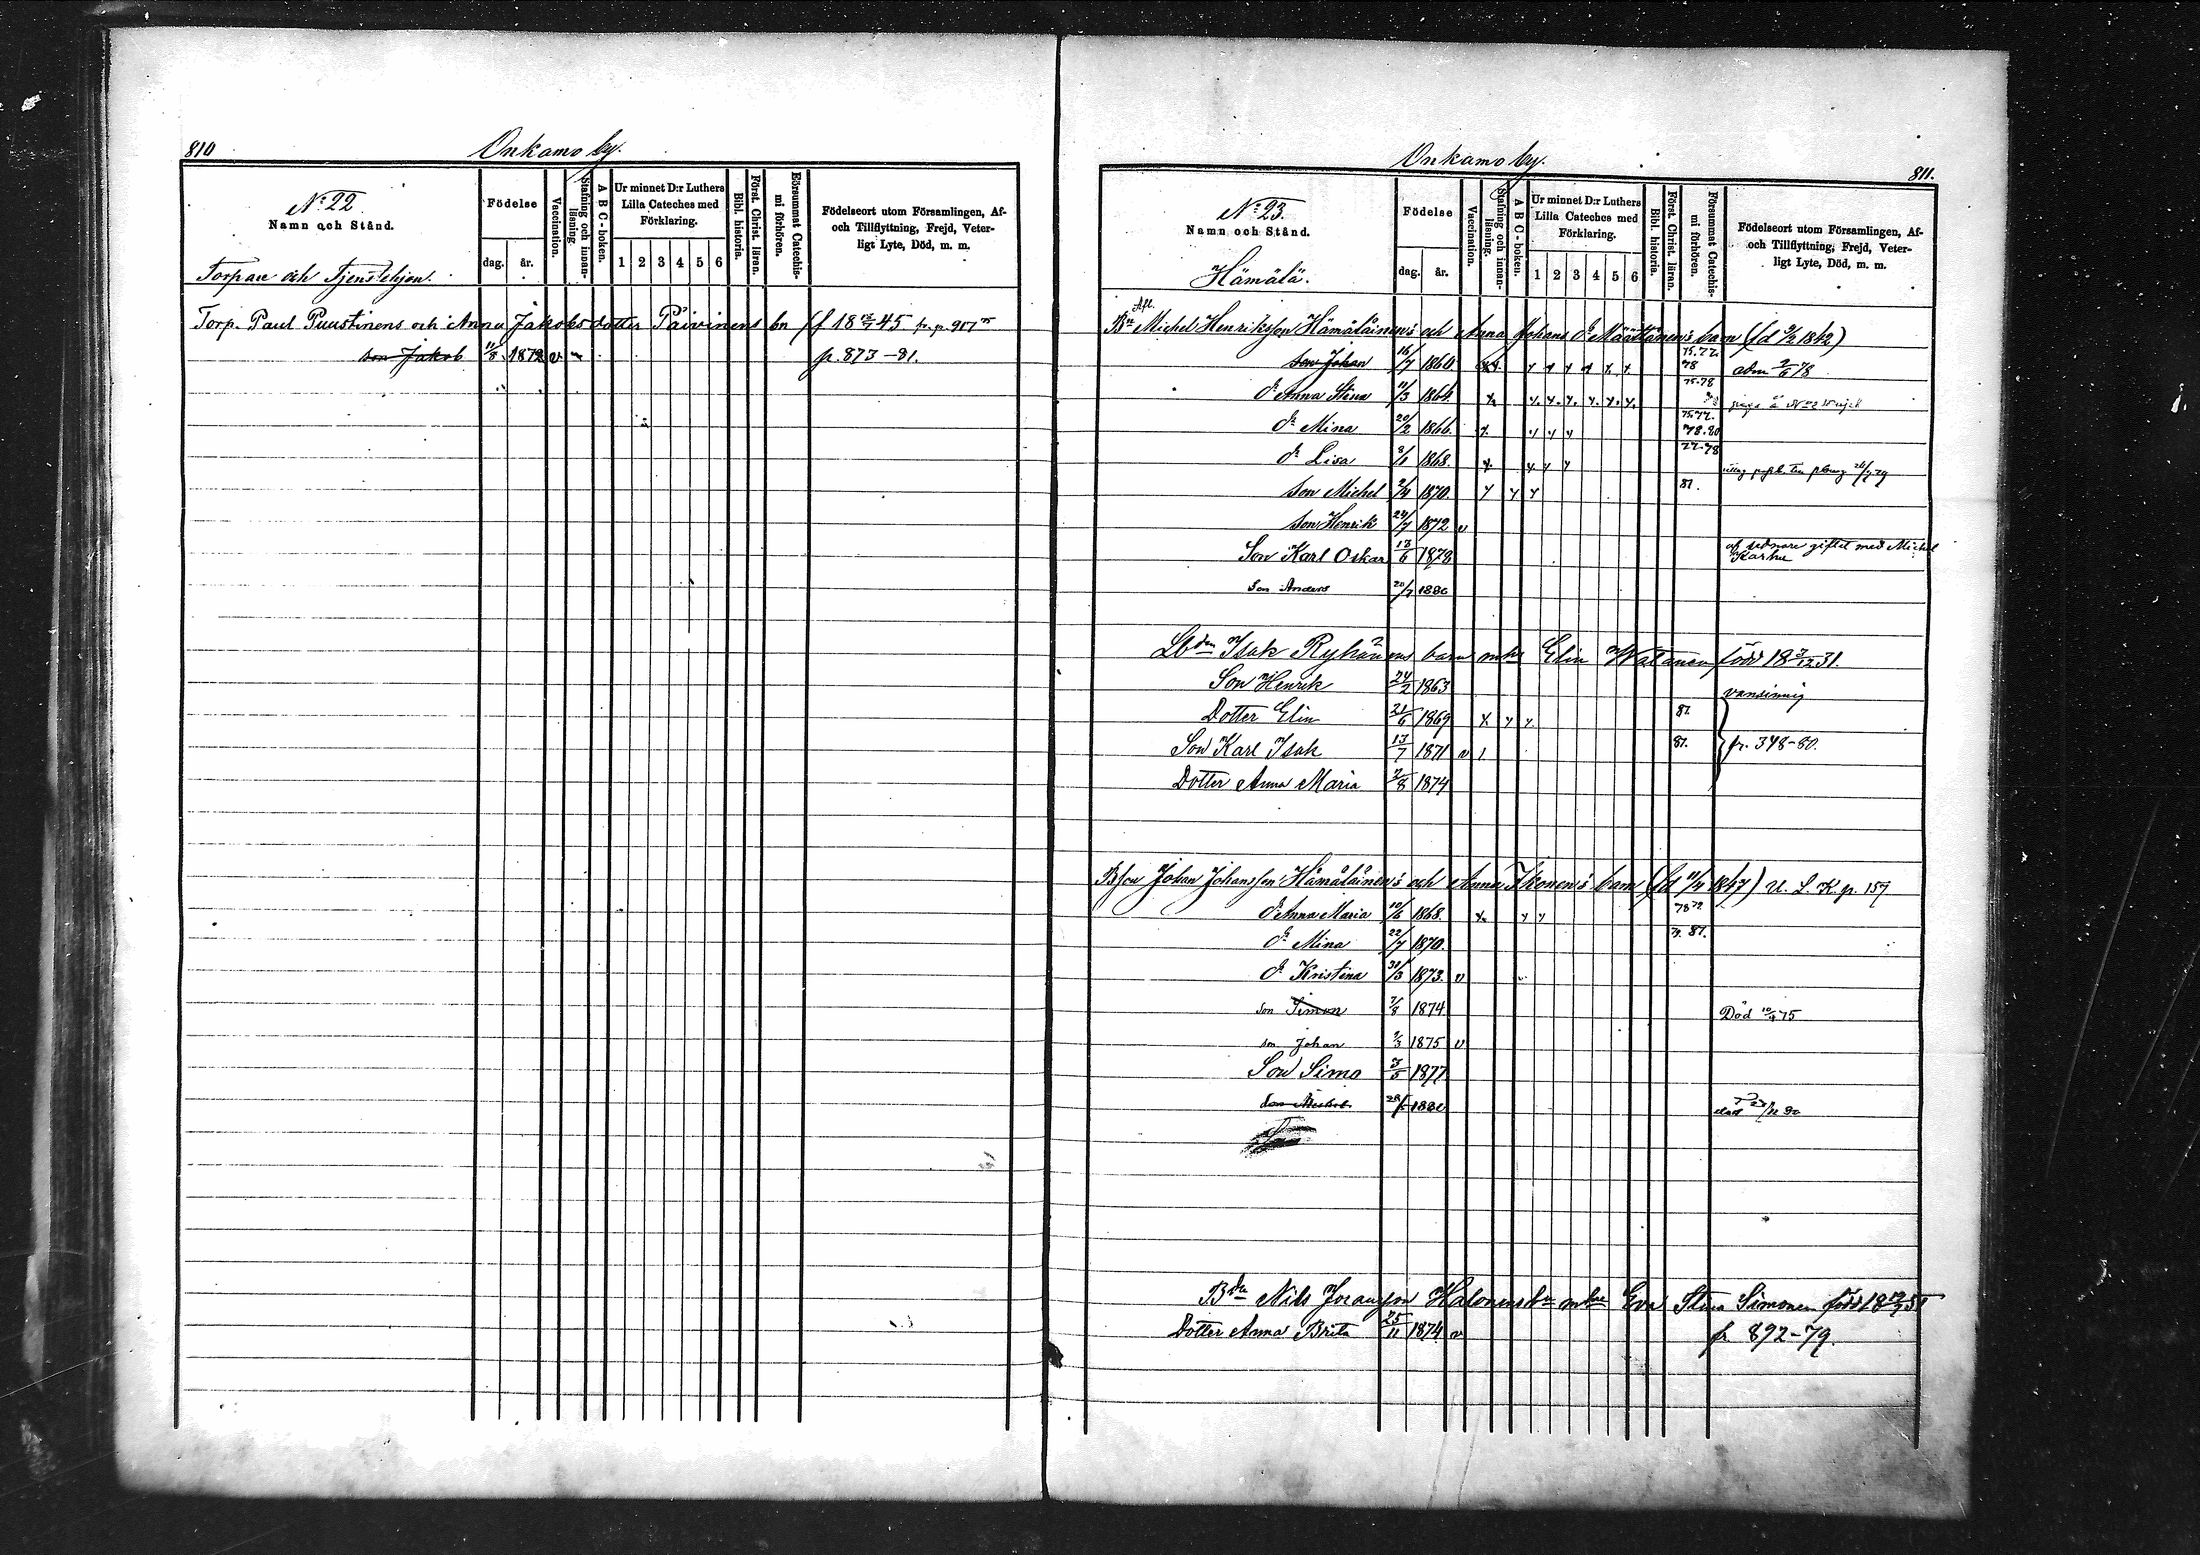 810
Onkamo by.
No 22
Namn och Stånd.
Födelse
dag. år.
Vaccination.
Stafning och innanläsning.
A B C-boken.
Ur minnet D:r Luthers Lilla Cateches med Förklaring.
1 2 3 4 5 6
Bibl. historia.
Först. Christ. läran.
Försummat Catechismi förhören.
Födelseort utom Församlingen, Af- och Tillflyttning, Frejd, Veterligt Lyte, Död, m. m.
Torpare och Tjenstehjon.
Torp. Paul Puustinens och Anna Jakobsdotter Päivinens bn (f 18 45
son Jakob 11/8 1872 v p. 873-81.
Onkamo by.
811.
No 23.
Namn och Stånd.
Födelse
dag. år.
Vaccination.
Stafning och innanläsning.
A B C-boken.
Ur minnet D:r Luthers Lilla Cateches med Förklaring.
1 2 3 4 5 6
Bibl. historia.
Först. Christ. läran.
Försummat Catechismi förhören.
Födelseort utom Församlingen, Af- och Tillflyttning, Frejd, Veterligt Lyte, Död, m. m.
Hämälä.
Afl.
Bn Michel Henriksson Hämäläinen's och Anna Johans dr Määttänen's barn (fd 9/2 1842)
son Johan 16/7 1860 75.77. 78 adm 2/6 78
dr Anna Stina 11/3 1864. 75-78
dr Mina 20/2 1866. 75.77. 78.80
dr Lisa 8/1 1868. 77-78
son Michel 2/4 1870. 81.
son Henrik 24/7 1872 v
Son Karl Oskar 13/6 1878 af sednare giftet med Michel Karhu
Son Anders 20/7 1880
Lbdn Isak Ryhäns barn mke Elin Watanen född 18 3/12 31.
Son Henrik 24/2 1863 vansinnig
Dotter Elin 21/6 1869 81.
Son Karl Isak 13/7 1871 v 81. fr. 348-80.
Dotter Anna Maria 2/8 1874
Bson Johan Johansson Hämäläinen's och Anna Ikonen's barn (fd 11/4 1847) U. S. K. p. 157
dr Anna Maria 10/6 1868. 78 79
dr Mina 22/7 1870. 81.
dr Kristina 31/3 1873. v
son Simon 7/8 1874 Död 10/4 75
son Johan 2/3 1875 v
Son Simo 3/5 1877
1880
Bdn Nils Johansson mke Eva Stina Simonen född 18
Dotter Anna Brita 25/11 1874 v fr 892-79.